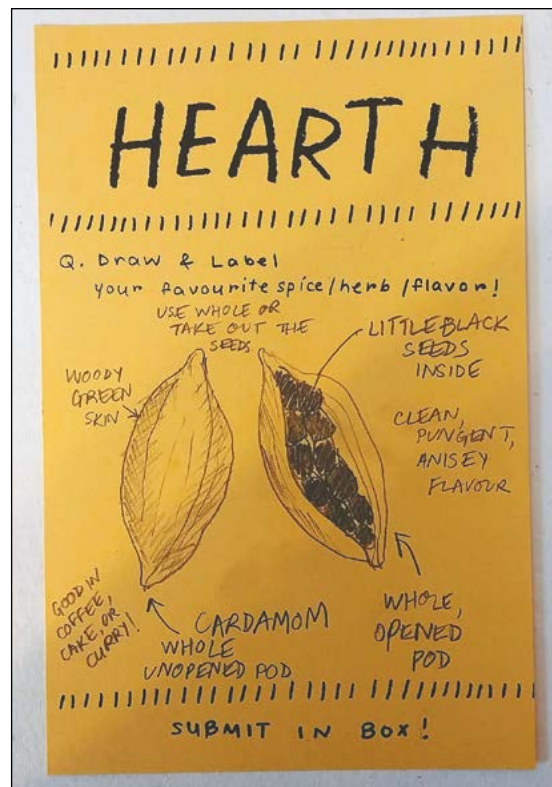 HEARTH
Q. Draw & Label
your favourite spice/herb/flavor!
USE WHOLE OR
TAKE OUT THE
SEEDS
LITTLE BLACK
SEEDS
INSIDE
WOODY
GREEN
SKIN
CLEAN,
PUNGENT,
ANISEY
FLAVOUR
GOOD IN
COFFEE,
CAKE, OR
CURRY!
CARDAMOM
WHOLE
UNOPENED POD
WHOLE,
OPENED
POD
SUBMIT IN BOX!